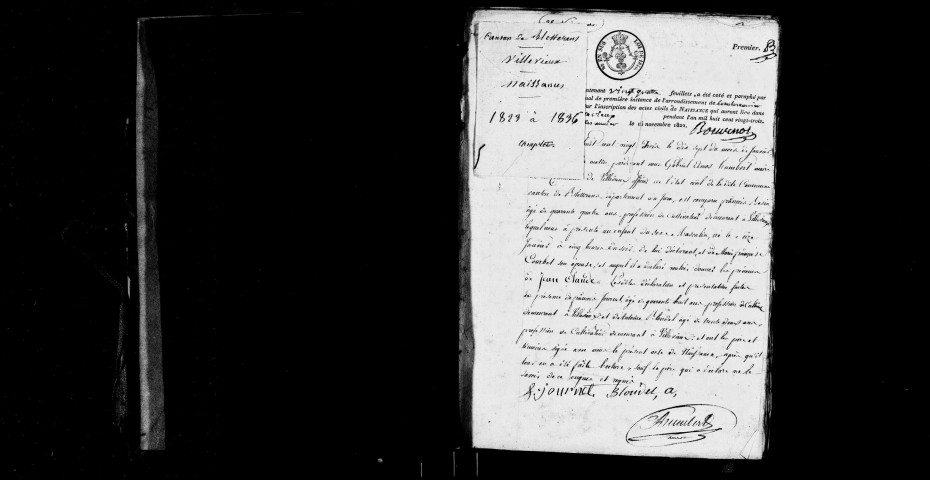 Canton de Bletterans
Villevieux
Naissances
1823 à 1836
complètes
Premier.
vingt quatre feuillets, a été coté et paraphé par
nal de première instance de l'arrondissement de
ur l'inscription des actes civils de NAISSANCE qui auront lieu dans
pendant l'an mil huit cent vingt-trois.
le 15 novembre 1822.
huit cent vingt trois le dix sept du mois de Janvier
matin pardevant nous Gabriel maire
de Villevieux officier de l'état civil de la dite Commune
canton de Bletterans, département du Jura, est comparu
âgé de quarante quatre ans, profession de cultivateur demeurant à Villevieux
lequel nous a présenté un enfant du sexe Masculin, né le
Janvier à cinq heures du soir de lui déclarant, et de Marie françoise
son épouse, et auquel il a déclaré vouloir donner les prénoms
de Jean Claude. Les dites déclaration et présentation faites
en présence de Journet, âgé de quarante huit ans profession de
demeurant à Villevieux, et de Antoine Blondel âgé de trente deux ans,
profession de Cultivateur demeurant à Villevieux; et ont les père et
témoins signé avec nous le présent acte de Naissance, après qu'il
leur en a été faite lecture, sauf le père qui a déclaré ne le
savoir de ce enquis et requis
journet, Blondel, a,